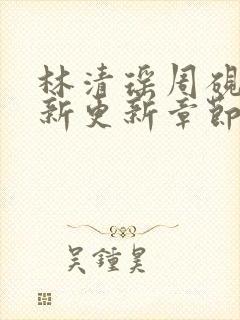 林清瑶周砚
新更新章節
吴鍾昊